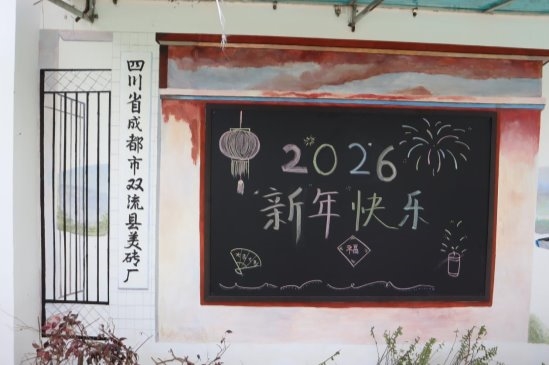 四川省成都市双流县美砖厂
2026
新年快乐
福